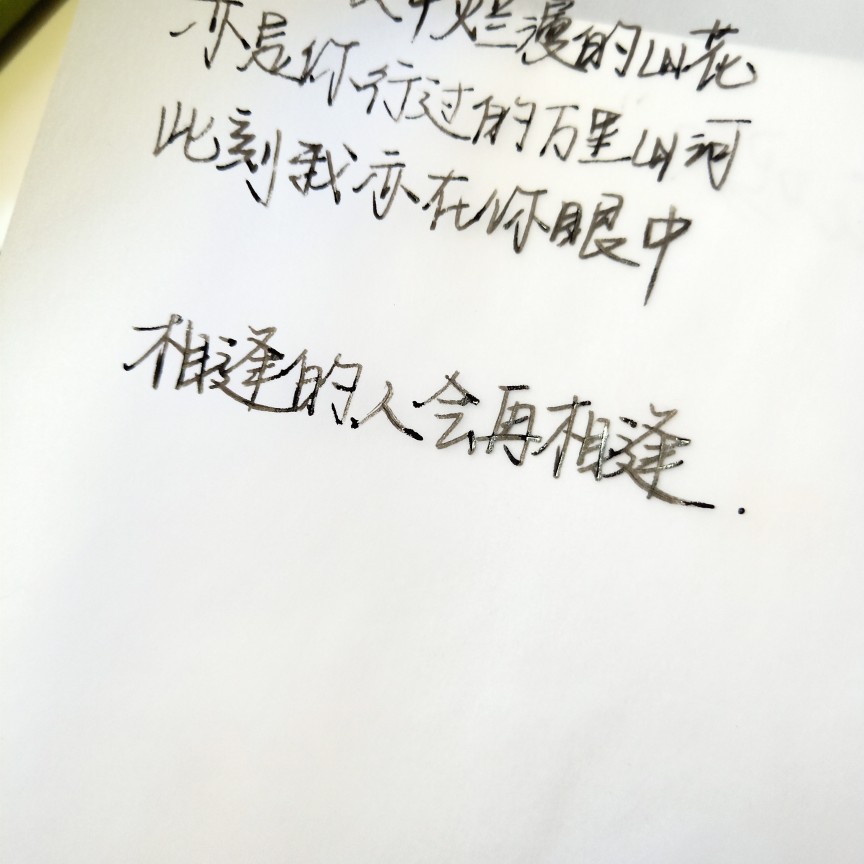 烂漫的山花
亦是你行过的万里山河
此刻我亦在你眼中
相逢的人会再相逢.